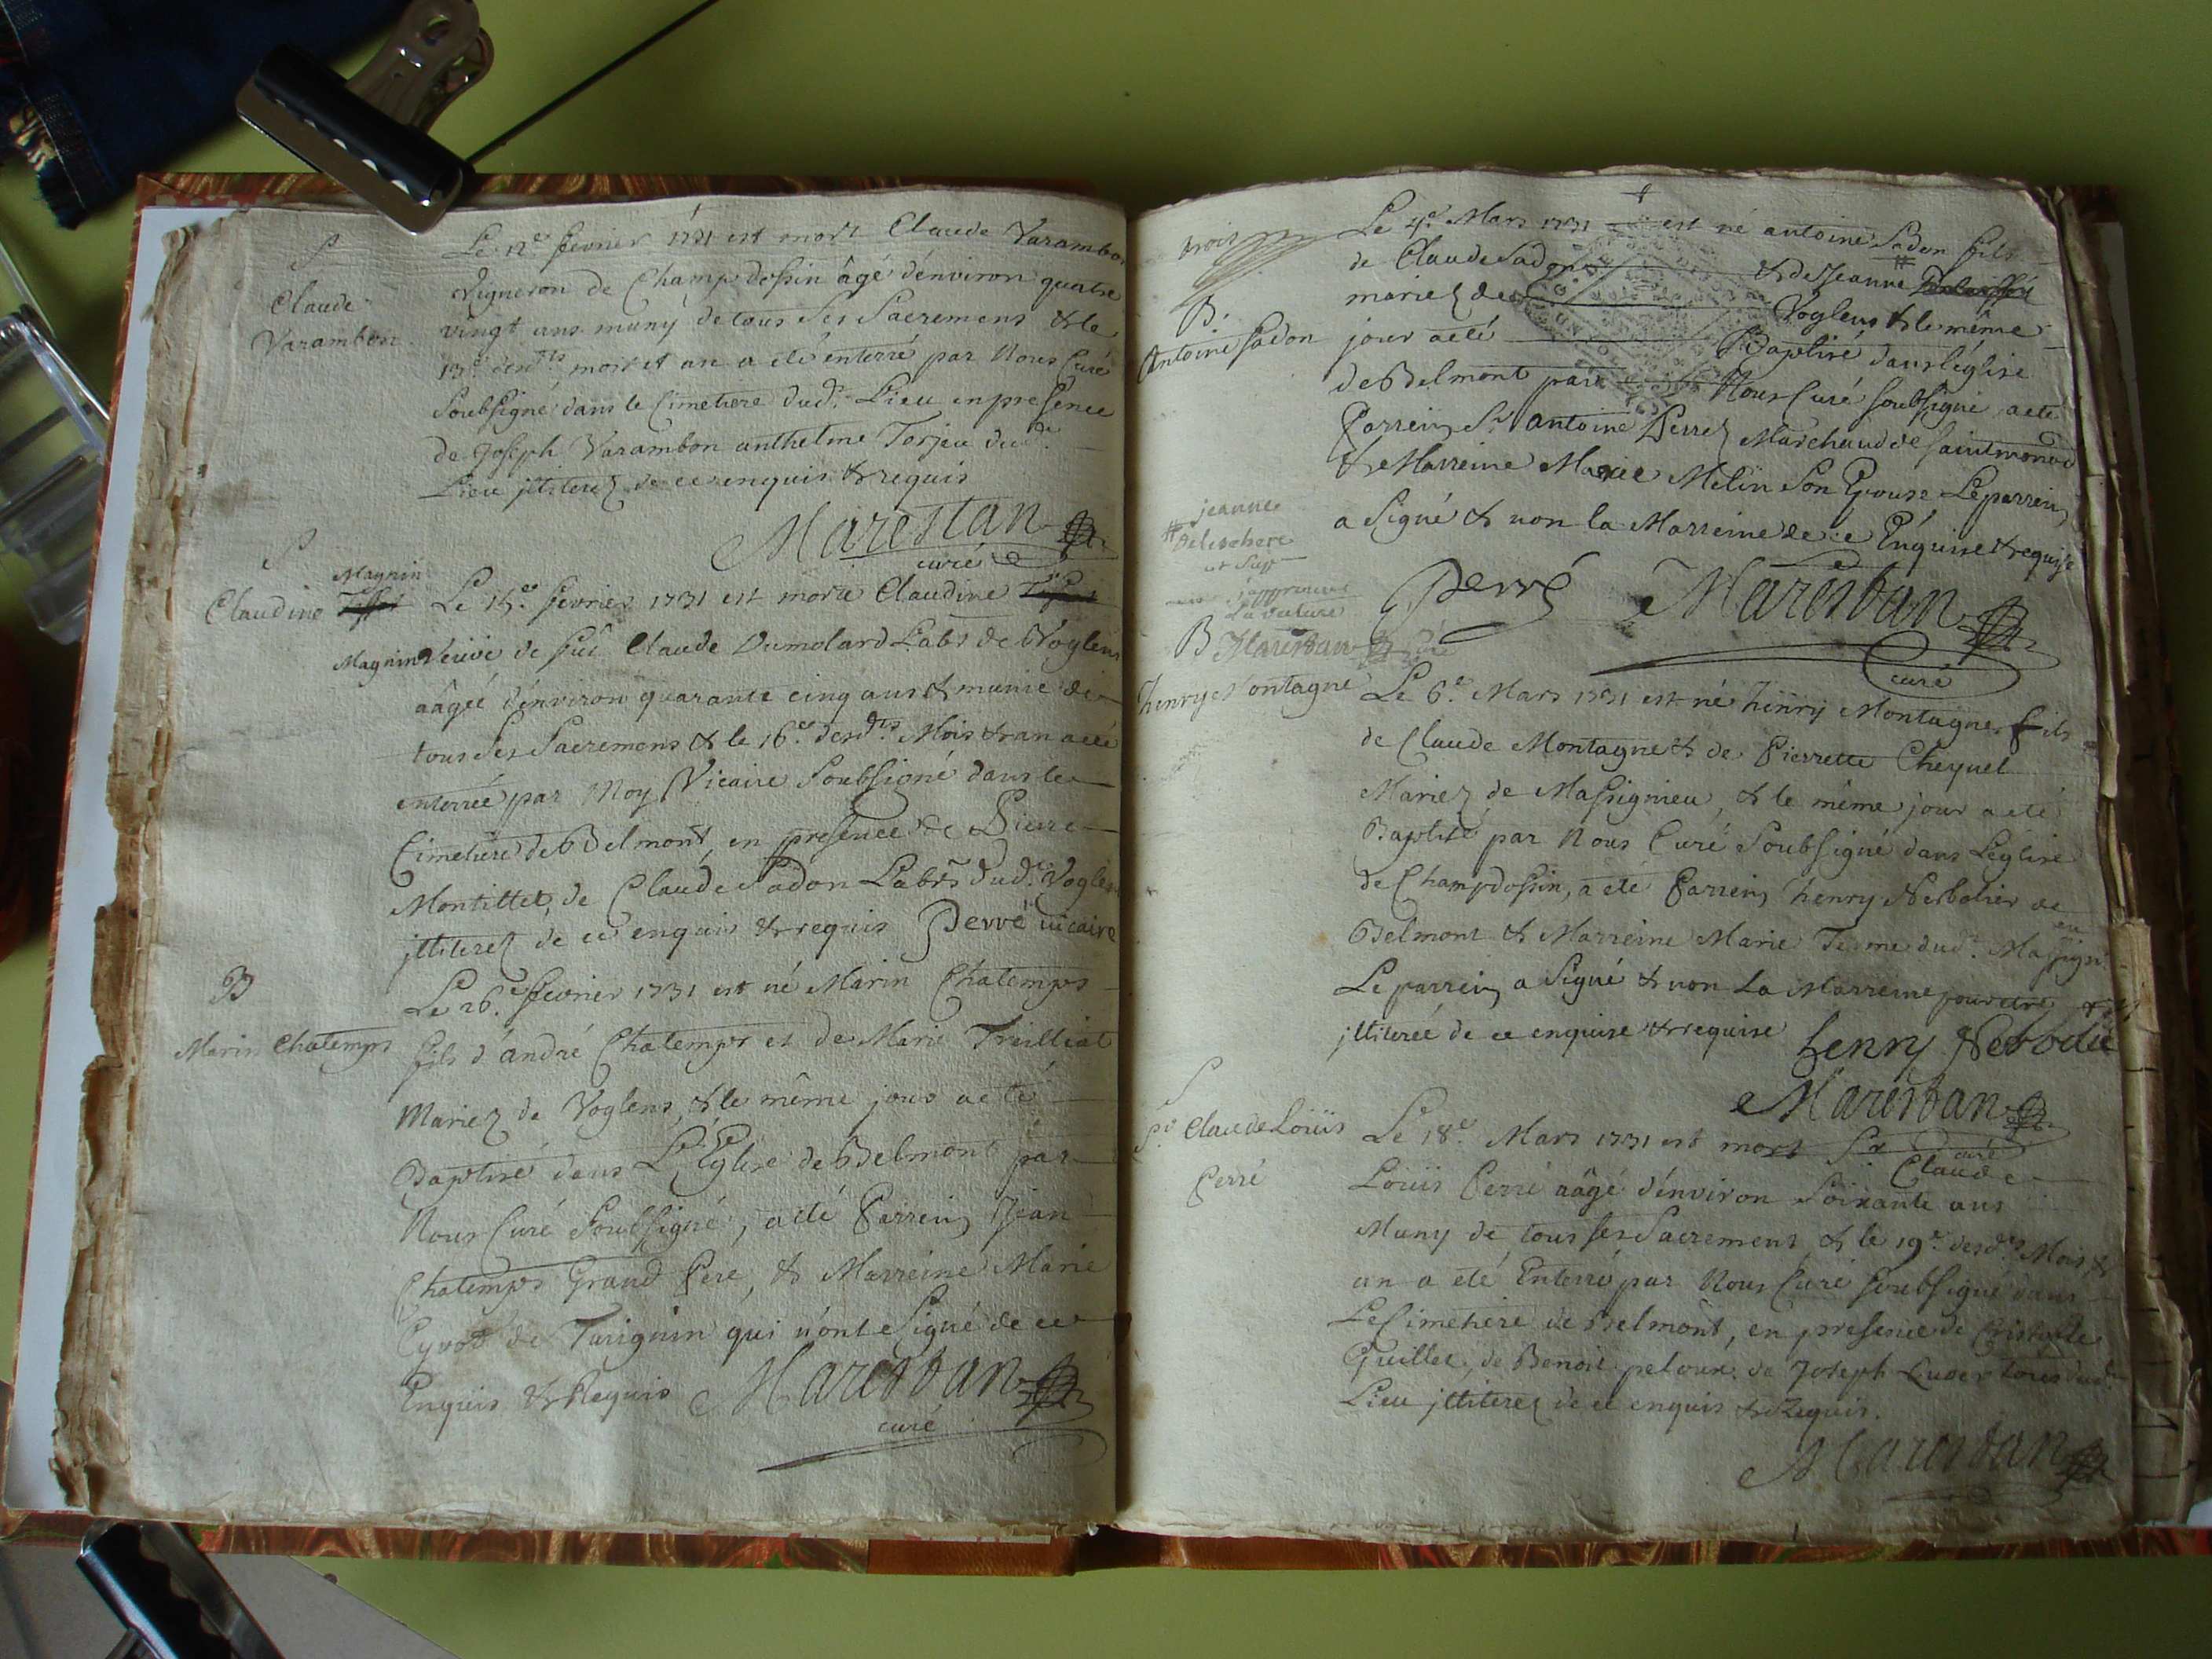 S
Claude
Varambon
Le 12e fevrier 1731 est mort Claude Varambon
Vigneron de Champdossin âgé d'environ quatre
vingt ans muny de tous ses Sacremens & le
13e desd.ts mois et an a été enterré par Nous Curé
Soubsigné dans le Cimetiere dud.t Lieu en présence
de Joseph Varambon anthelme Torjeu dud.
Lieu jlliterez de ce enquis & requis
Marestan
curé
S
Claudine Magnin
Le 15e fevrier 1731 est morte Claudine
Magnin Veuve de feu Claude Dumolard Labr de Voglens
âagée d'environ quarante cinq ans & munie de
tous ses Sacremens & le 16e desd.ts Mois & an a été
enterrée par Moy Vicaire Soubsigné dans le
Cimetiere de Belmont, en présence de Pierre
Montillet, de Claude Sadon Labrs dud.t Voglens
jlliterez de ce enquis & requis Perré vicaire
B
Marin Chatemps
Le 26e fevrier 1731 est né Marin Chatemps
fils d'andré Chatemps et de Marie Treilliat
Mariez de Voglens, & le même jour a eté
Baptisé dans L'Église de Belmont par
Nous Curé Soubsigné, a été Parrein Jean
Chatemps Grand Pere, & Marreine Marie
Eyvod de Turignin qui n'ont Signé de ce
Enquis & Requis Marestan
curé
trois
B.
Antoine Sadon
Le 4e Mars 1731 est né antoine Sadon fils
de Claude Sadon & de Jeanne
mariez de Voglens & le même
jour a eté Baptisé dans l'église
de Belmont par Nous Curé soubsigné a eté
Parrein Sr antoine Perrez Marchand de Saint
& Marreine Marie Melin Son Epouse Le parrein
a Signé & non la Marreine de ce Enquise & requise
# jeanne
Perré Marestan
curé
B Marestan curé
henry Montagne
Le 6e Mars 1731 est né henry Montagne fils
de Claude Montagne & de Pierrette Cheynel
Mariez de Massignieu, & le même jour a eté
Baptisé par Nous Curé Soubsigné dans L'église
de Champdossin, a eté Parrein henry de
Belmont & Marreine Marie dud.t Massignieu
Le parrein a Signé & non La Marreine pour etre
jlliterée de ce enquise & requise henry
Marestan
curé
S
Sr Claude Loüis
Perré
Le 18e Mars 1731 est mort Sr Claude
Loüis Perré âagé d'environ Soixante ans
Muny de tous ses Sacremens, & le 19e desd.ts Mois &
an a eté Enterré par Nous Curé soubsigné dans
Le Cimetiere de Belmont, en présence de Cristophle
Guillet, de Benoit de Joseph tous dud.t
Lieu jlliterez de ce enquis & Requis.
Marestan